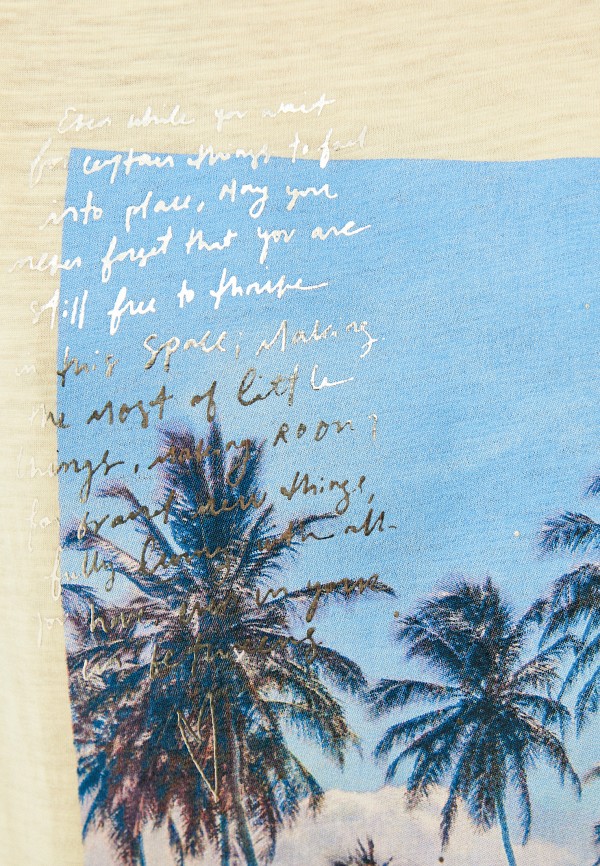 Even while you wait
for certain things to fall
into place, May you
never forget that you are
still free to thrive
in this Space; Making
the most of little
things, making ROOM
for brand new things,
fully living with all
you have that in your